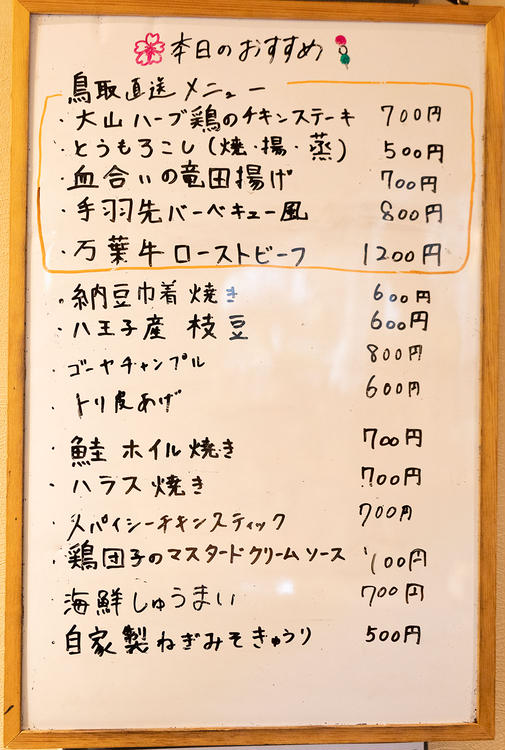 本日のおすすめ
鳥取直送メニュー
・大山ハーブ鶏のチキンステーキ 700円
・とうもろこし(焼・揚・蒸) 500円
・血合いの竜田揚げ 700円
・手羽先バーベキュー風 800円
・万葉牛ローストビーフ 1200円
・納豆巾着焼き 600円
・八王子産 枝豆 600円
・ゴーヤチャンプル 800円
・トリ皮あげ 600円
・鮭ホイル焼き 700円
・ハラス焼き 700円
・スパイシーチキンスティック 700円
・鶏団子のマスタードクリームソース
・海鮮しゅうまい 700円
・自家製ねぎみそきゅうり 500円